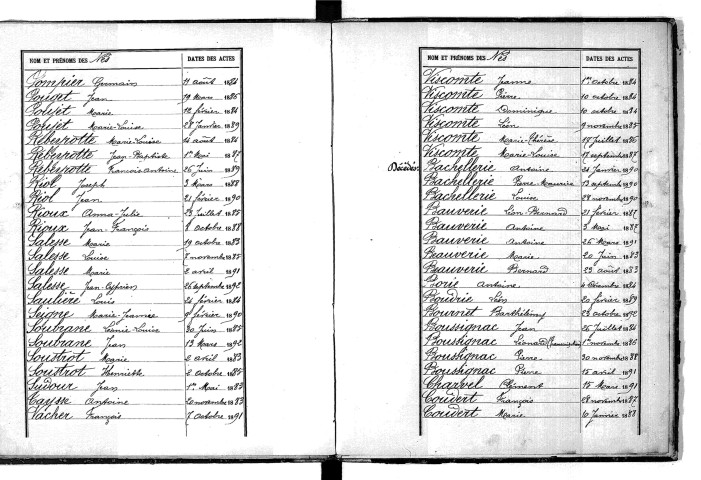 NOM ET PRÉNOMS DES Nés DATES DES ACTES
Pompier Germain 11 août 1884
Pouget Jean 19 Mars 1886
Poujet Marie 12 février 1884
Poujet Marie-Louise 28 Janvier 1889
Rebeyrotte Marie-Louise 14 août 1886
Rebeyrotte Jean-Baptiste 1er Mai 1887
Rebeyrotte Francois-Antoine 26 Juin 1889
Riol Joseph 3 Mars 1888
Riol Jean 21 février 1890
Rioux Anna-Julie 23 Juillet 1885
Rioux Jean-François 1 octobre 1888
Salesse Marie 19 octobre 1883
Salesse Louise 7 novembre 1885
Salesse Marie 2 avril 1891
Salesse Jean-Cyprien 26 septembre 1892
Saulière Louis 24 février 1884
Seigne Marie-Jeanne 9 février 1890
Soubrane Louise 30 Juin 1885
Soubrane Jean 13 Mars 1892
Soustrot Marie 2 avril 1883
Soustrot Henriette 2 octobre 1885
Sudour Jean 1er Mai 1883
Taysse Antoine 20 novembre 1883
Vacher François 7 octobre 1891
NOM ET PRÉNOMS DES Nés DATES DES ACTES
Viscomte Jeanne 1er octobre 1884
Viscomte Pierre 10 octobre 1884
Viscomte Dominique 10 octobre 1884
Viscomte Léon 9 novembre 1885
Viscomte Marie-Thérèse 19 Juillet 1886
Viscomte Marie-Louise 17 septembre 1887
Bachellerie Antoine 21 Janvier 1890
Bachellerie 13 septembre 1890
Bachellerie Louise 28 novembre 1890
Bauverie Léon-Bernard 21 février 1887
Bauverie Antoine 3 Mai 1887
Bauverie Antoine 26 Mars 1891
Beauverie Marie 20 Juin 1883
Beauverie Bernard 23 août 1883
Borie Antoine 4 Décembre 1884
Boudrie Léon 20 février 1889
Bournet Barthélémy 23 octobre 1892
Boussignac Jean 26 Juillet 1884
Boussignac Léonard 1er novembre 1886
Boussignac Pierre 30 novembre 1888
Boussignac Pierre 15 avril 1891
Charvel Clément 15 Mars 1891
Coudert François 28 novembre 1887
Coudert Marie 10 Janvier 1888